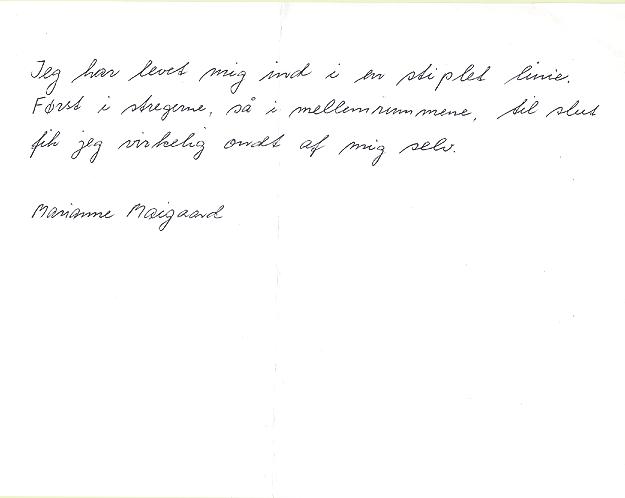 Jeg har levet mig ind i en stiplet linie.
Først i stregerne, så i mellemrummene, til slut
fik jeg virkelig ondt af mig selv.
Marianne Maigaard